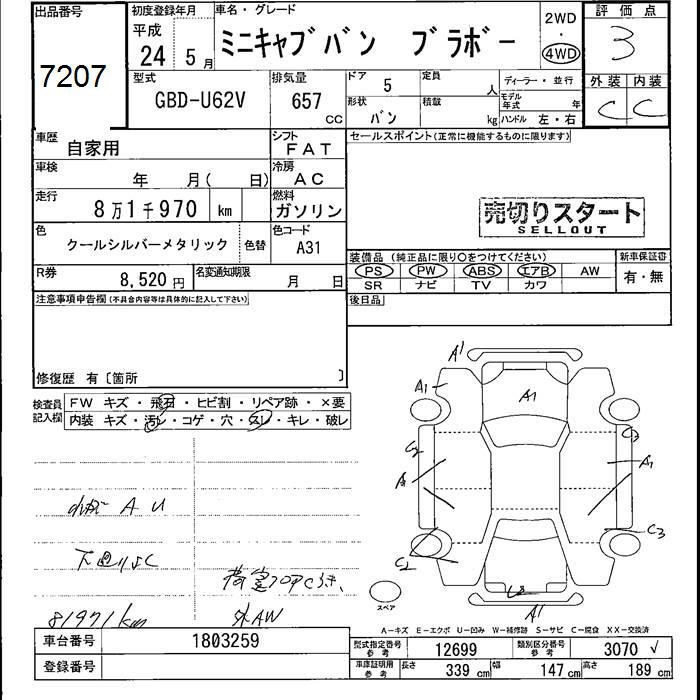 出品番号
7207
初度登録年月
平成
24年 5月
車名・グレード
ミニキャブバン ブラボー
2WD
・
4WD
評価点
3
外装 内装
C C
型式
GBD-U62V
排気量
657
CC
ドア 5
形状 バン
定員 人
積載 kg
ディーラー・並行
モデル年式 年
ハンドル 左・右
車歴 自家用
シフト FAT
セールスポイント(正常に機能するものに限ります)
車検 年 月( 日)
冷房 AC
走行 8万1千970 km
燃料 ガソリン
売切りスタート
SELLOUT
色 クールシルバーメタリック 色替
色コード A31
装備品(純正品に限り○をつけてください)
新車保証書
PS PW ABS エアB AW
SR ナビ TV カワ
有・無
R券 8,520円
名変通知期限 月 日
後日品
注意事項申告欄(不具合内容等は具体的に記入して下さい)
修復歴 有〔箇所 〕
検査員記入欄
FW キズ・飛石・ヒビ割・リペア跡・×要
内装 キズ・汚レ・コゲ・穴・スレ・キレ・破レ
A U
下廻りSC
81971km
外AW
A1
A1
A1
C2
A1
C2
C3
A1
C3
A1
スペア
A−キズ E−エクボ U−凹み W−補修跡 S−サビ C−腐食 XX−交換済
車台番号 1803259
登録番号
型式指定番号 参考 12699
類別区分番号 参考 3070 ✓
車庫証明用 参考 長さ 339 cm 幅 147 cm 高さ 189 cm